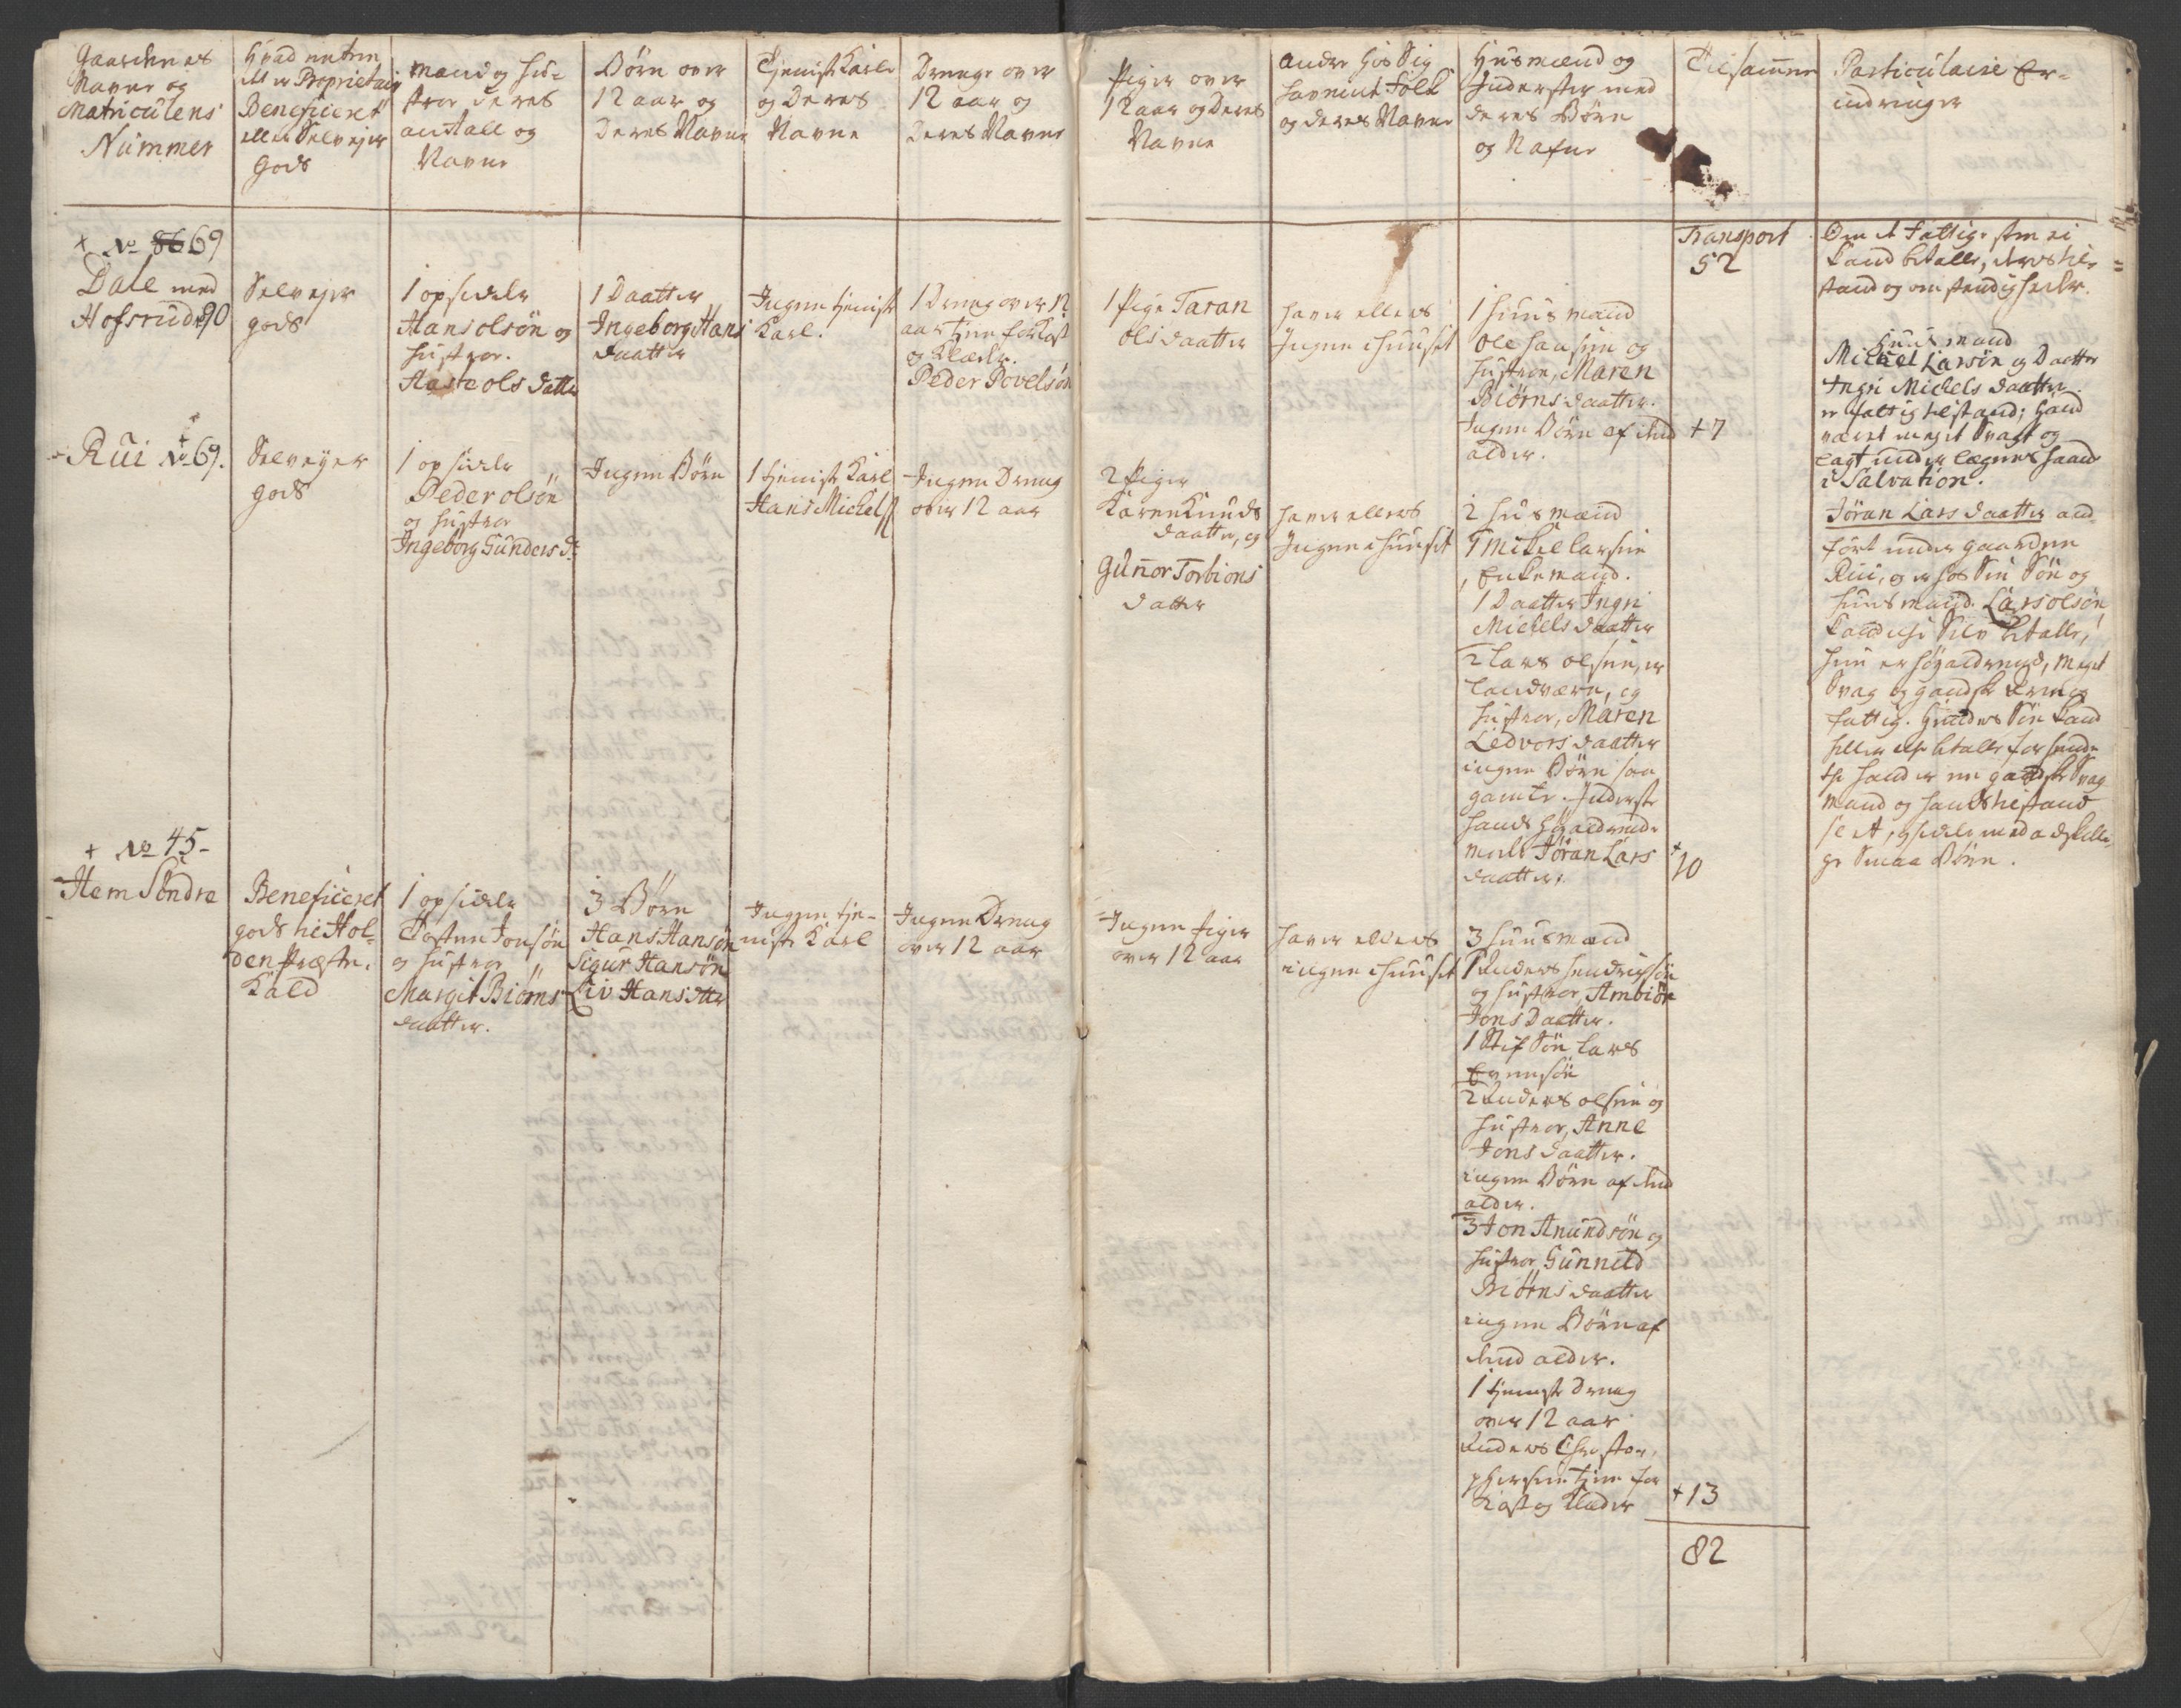 Gaardenes
Navne og
Matriculens
Nummer
Hvad enten
det er Proprietair
Beneficeret
eller Selvejer
Gods
mand og hu-
stroe deres
antall og
Navne
Børn over
12 aar og
Deres Navne
Tjeniste Karle
og Deres
Navne
Drenge over
12 aar og
Deres Navne
Piger over
12 aar og Deres
Navne
Andre hos Sig
havende Folk
og deres Navne
Husmænd og
Inderster med
deres Børn
og Nafne
Tilsamen
Particulaire Er-
indringer
+ No 86 69
Dale med
Hofsrud 90
Selvejer
gods
1 opsidder
Hans olsøn og
hustroe.
Aaste ols datter
1 Daatter
Ingeborg Hans
daatter
Ingen tjeniste
Karl.
1 Dreng over 12
aar tjene for Kost
og Klæder.
Peder Povelsøn
1 Pige Taran
ols daatter
haver ellers
Ingen i huuset
1 huusmand
ole hansen og
hustroe, Maren
Biørns daatter.
Ingen Børn af den
alder.
Transport
52
+ 7
Om de Fattige som ei
kand betalle, deres til-
stand og omstendigheder.
Huusmand
Michel Larsøn og Daatter
Ingri Michels daatter
er fattig tilstand; hand
været meget Svagt og
lagt under lægens haand
i Salvation.
Rui No 69.
Selvejer
gods
1 opsidder
Peder olsøn
og hustroe
Ingeborg Gunders dr
Ingen Børn
1 tjeniste Karl
Hans Michels
Ingen Dreng
over 12 aar
2 Piger
Karen Knuds
daatter, og
Gunnor Torbions
datter
haver ellers
Ingen i huuset
2 husmænd
1 Mikel larsen
Enkemand.
1 Daatter Ingri
Michels daatter
2 Lars olsen, er
landværn, og
hustroe, Maren
Ledvors daatter
ingen Børn saa
gamle. Inderste
hands høyaldrende
moder Jøran Lars
daatter.
+
10
Jøran Lars daatter an-
ført under gaarden
Rui, og er hos Sin Søn og
huusmand. Lars olsøn
kand ej Selv betalle,
hun er høyaldrende, meget
Svag og gandske
fattig. Hendes Søn kand
heller ej betalle for hende
thi hand er en gandske Svag
mand og hands tilstand
slet, og sidder med adskilli-
ge Smaa Børn.
+ No 45-
Hem Søndre
Beneficeret
gods til Hol-
den Præste-
Kald
1 opsidder
Tosten Jonsøn
og hustroe
Margit Biørns-
daatter.
3 Børn
Hans Hansøn
Sigur Hansøn
Liv Hans dtter
Ingen tje-
niste Karl
Ingen Dreng
over 12 aar
Ingen Piger
over 12 aar
haver ellers
ingen i huuset
3 huusmænd
1 Anders hendrichsøn
og hustroe, Ambiør
Jons Daatter.
1 Stif Søn Lars
Evensøn
2 Anders olsen og
hustroe, Anne
Jons daatter.
ingen Børn af den
alder.
3 Jon Anundsøn og
hustroe, Gunneld
Biørns daatter
ingen Børn af
den alder.
1 tjeniste Dreng
over 12 aar
Anders Christo-
phersen tjene for
kost og klæder
+ 13
82